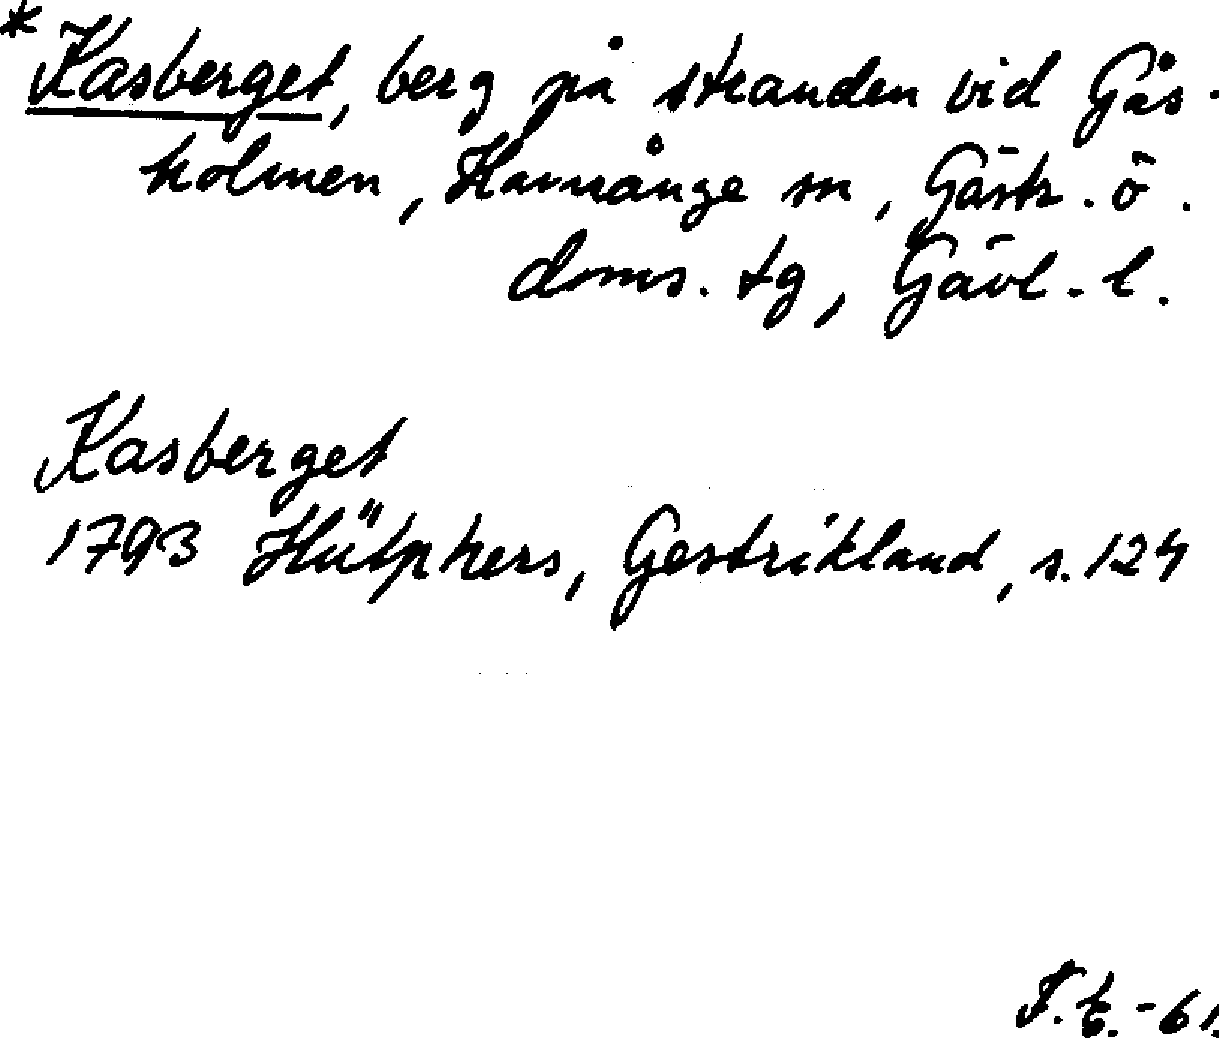 * Kasberget, berg på stranden vid Gås-
holmen, Hamrånge sn, Gästr. ö.
doms. tg, Gävl. l.
Kasberget
1793 Hülphers, Gestrikland, s. 124